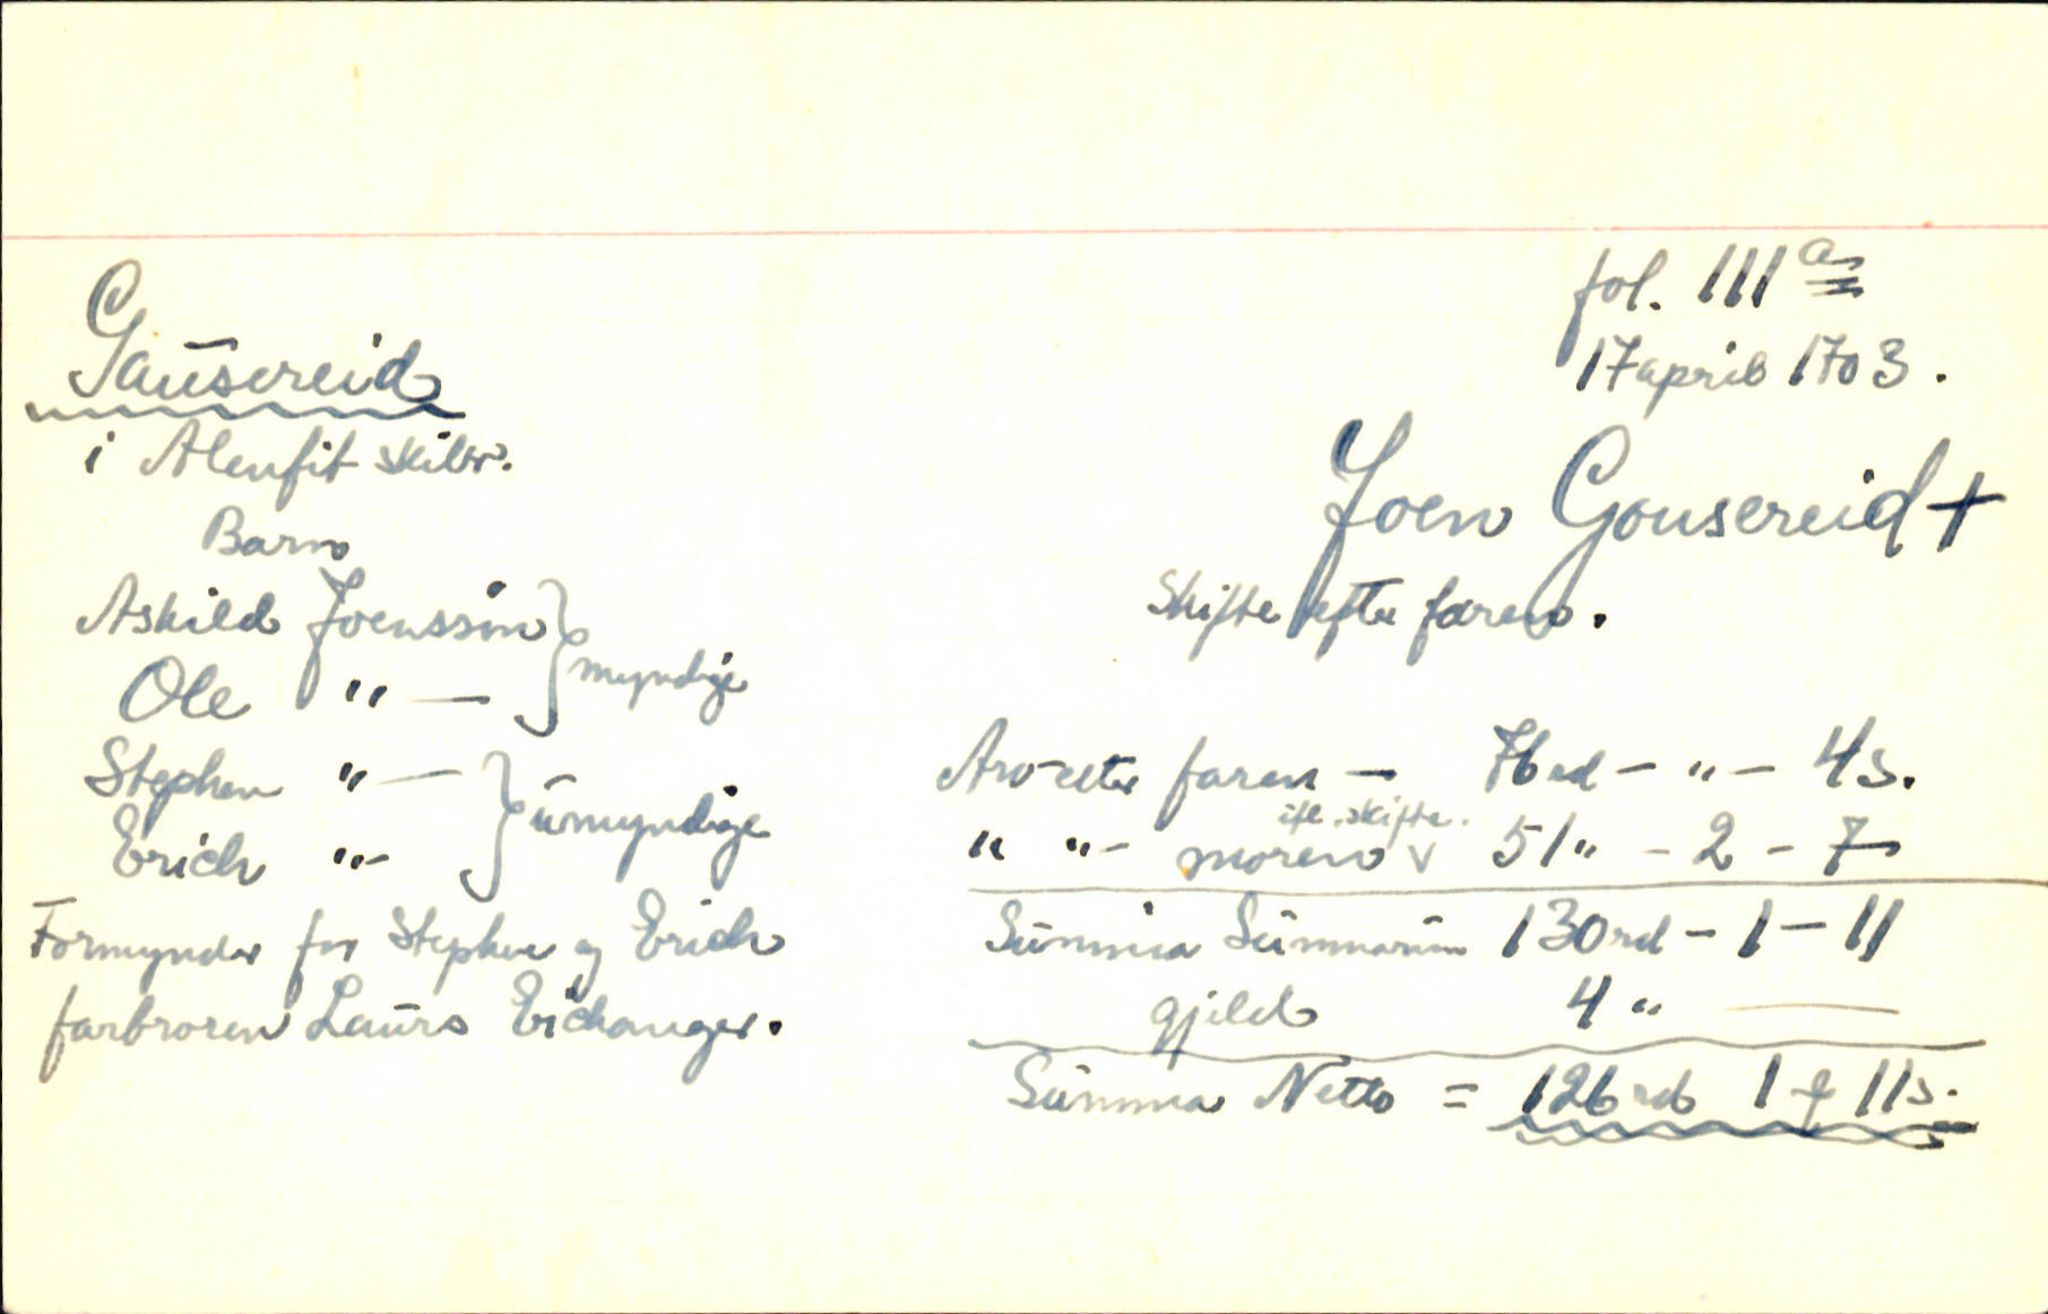 Gausereid
i Alenfit skibr.
Barn
Askild Joenssøn } myndige
Ole " —
Stephen " — } umyndige
Erich " -
Formynder for Stephen og Erich
farbroren Laurs Eichanger.
fol. 111 a
17 april 1703.
Joen Gousereid +
Skifte efter faren.
Arv efter faren — 76 rd - " - 4 s.
" " - moren ifl. skifte. 51 " - 2 - 7
Summa Summarum 130 rd - 1 - 11
gjeld 4 " —
Summa Netto = 126 rd 1 ƒ 11 s.